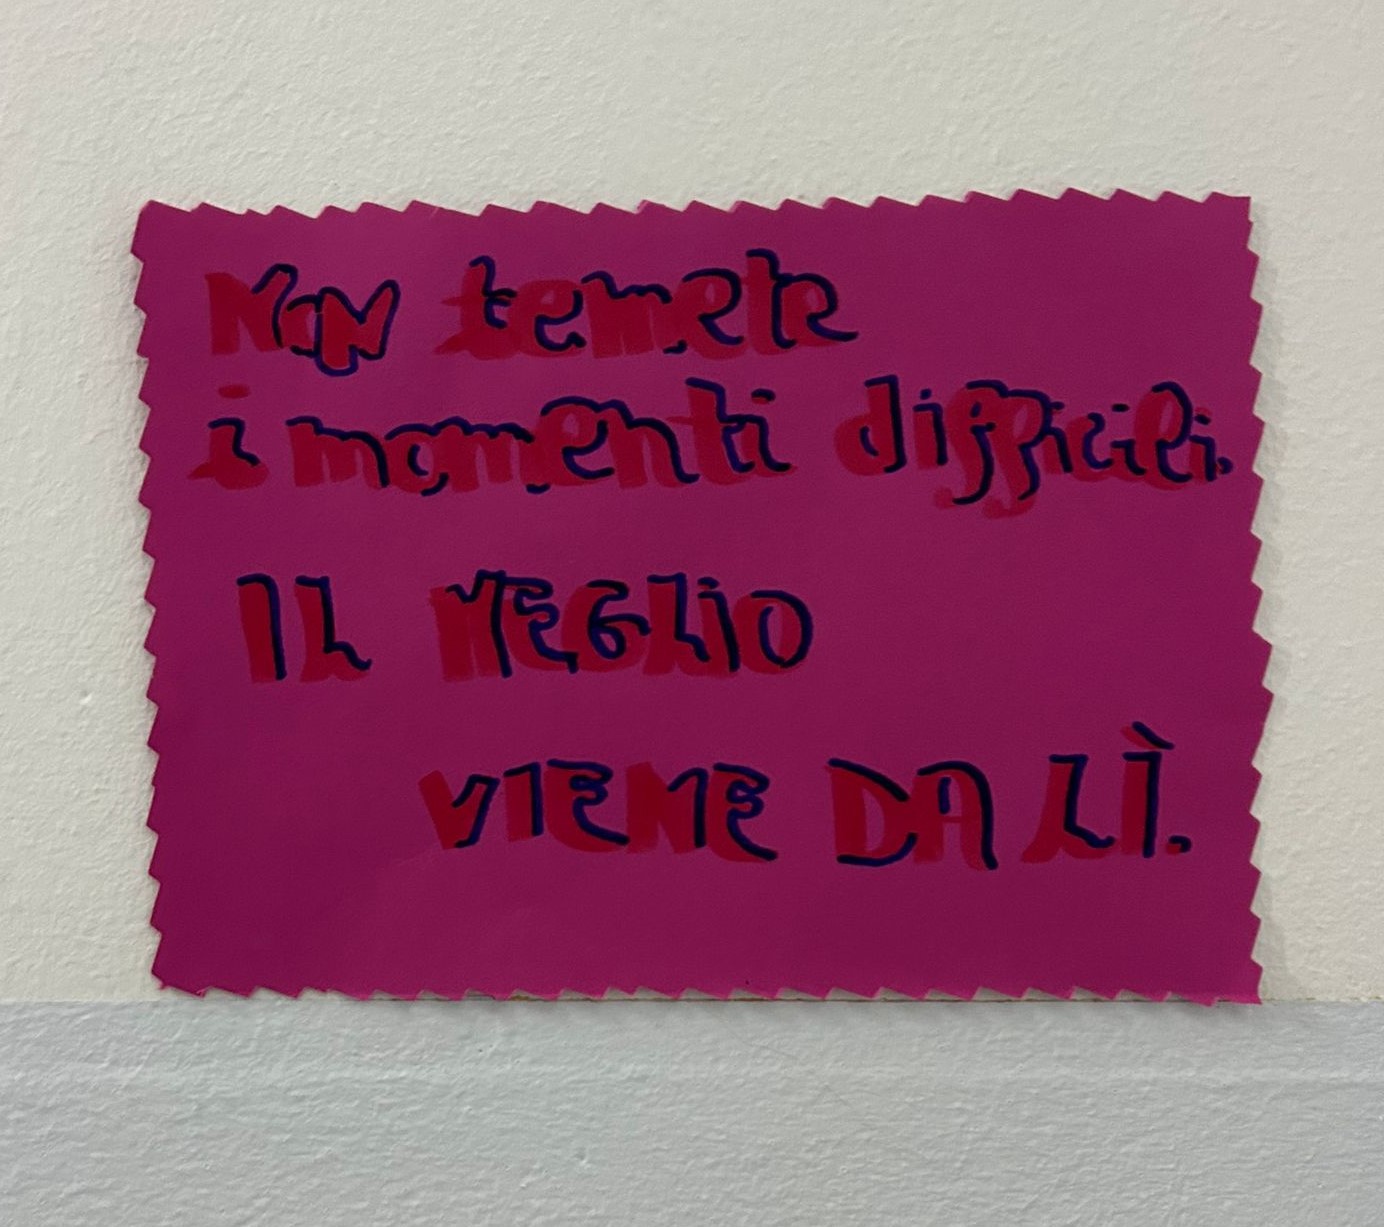 Non temete
i momenti difficili.
IL MEGLIO
VIENE DA LÌ.